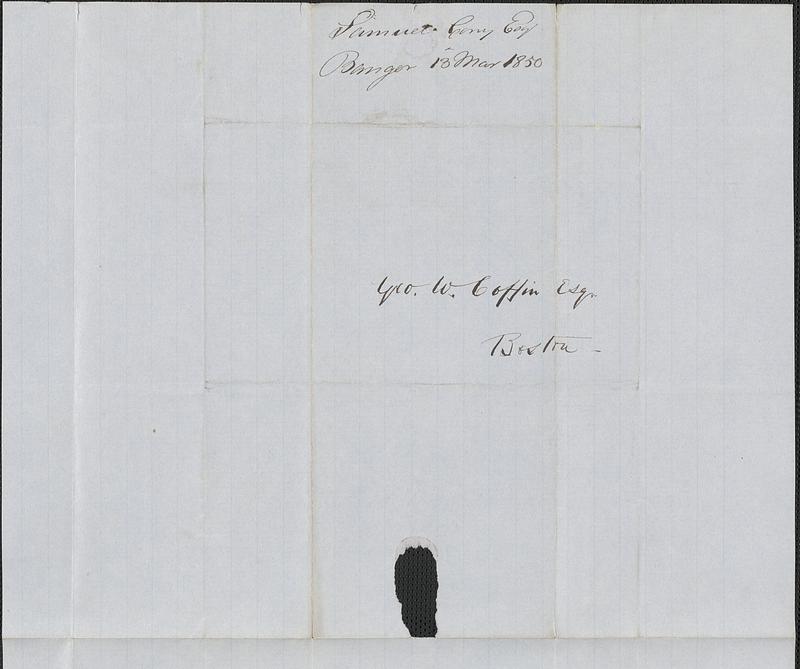 Samuel Cony Esq
Bangor 13 Mar 1850
Geo. W. Coffin Esqr
Boston -